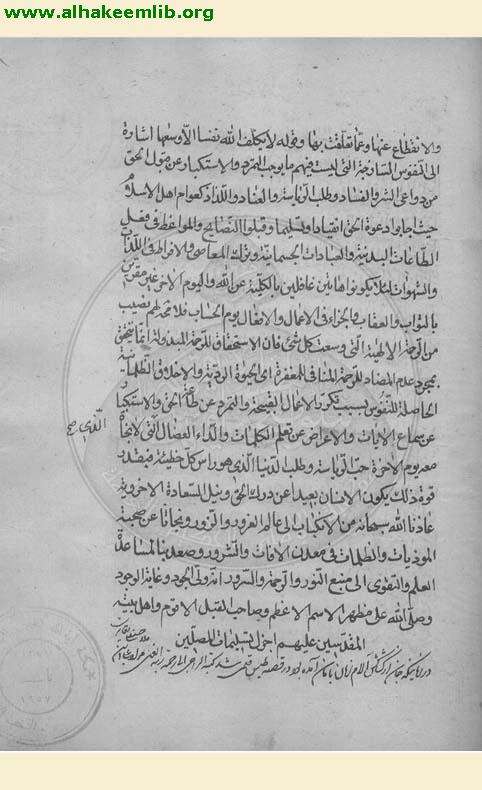 www.alhakeemlib.org
والانقطاع عنها وعما تعلقت بها وقوله لا يكلف الله نفسا الا وسعها اشارة
الى النفوس الساذجة التى ليست فيهم ما يوجب التمرد والاستكبار عن قبول الحق
من دواعى الشر والفساد وطلب الرياسة والعناد واللداد كعوام اهل الاسلام
حيث اجابوا دعوة الحق انقيادا وتسليما وقبلوا النصايح والمواعظ فى فعل
الطاعات البدنية والعبادات الجسمانية وترك المعاصى والافراط فى اللذات
والشهوات لئلا يكونوا هائمين غافلين بالكلية عن الله واليوم الاخر غير مقرين
بالثواب والعقاب والجزاء فى الاعمال والافعال يوم الحساب فلا محة لهم نصيب
من الرحمة الالهية التى وسعت كل شئ فان الاستحقاق للرحمة انما يتحقق
بمجرد عدم المضاد للرحمة المنافى للمغفرة اى الجهالة الردية والاخلاق الظلمانية
الحاصلة للنفوس بسبب تكرر الاعمال القبيحة والتمرد عن طاعة الحق والاستكبار
عن سماع الايات والاعراض عن تعلم الكلمات والداء العضال التى لا نجاة
الذى صح
معه يوم الاخرة حب الرياسة وطلب الدنيا الذى هو راس كل خطيئة فبقدر
قوة ذلك يكون الانسان بعيدا عن درك الحق ونيل السعادة الاخروية
عاذنا الله سبحانه من الانكباب الى عالم الغرور والزور ونجانا عن صحبة
الموذيات والظلمات فى معدن الافات والشرور وصعد بنا لمساعدة
العلم والتقوى الى منبع النور والرحمة والسرور انه ولى الجود وغاية الوجود
وصلى الله على مظهر الاسم الاعظم وصاحب القبل الاقوم واهل بيته
المقدسين عليهم اجزل تسليمات المصلين